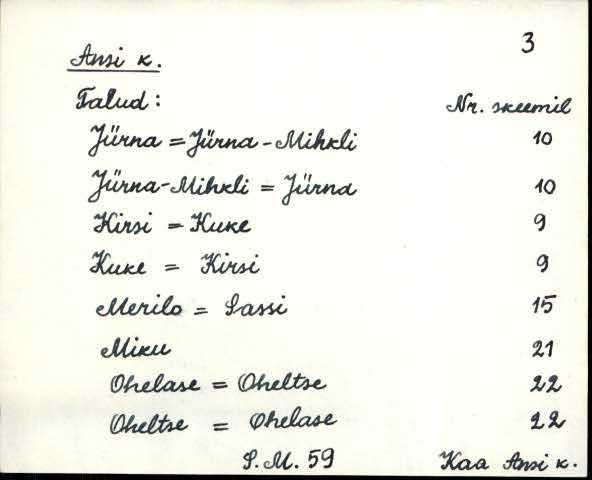 3
Ansi k.
Talud: Nr. skeemil
Jürna = Jürna-Mihkli 10
Jürna-Mihkli = Jürna 10
Kirsi = Kuke 9
Kuke = Kirsi 9
Merilo = Sassi 15
Miku 21
Ohelase = Oheltse 22
Oheltse = Ohelase 22
S.M. 59 Kaa Ansi k.